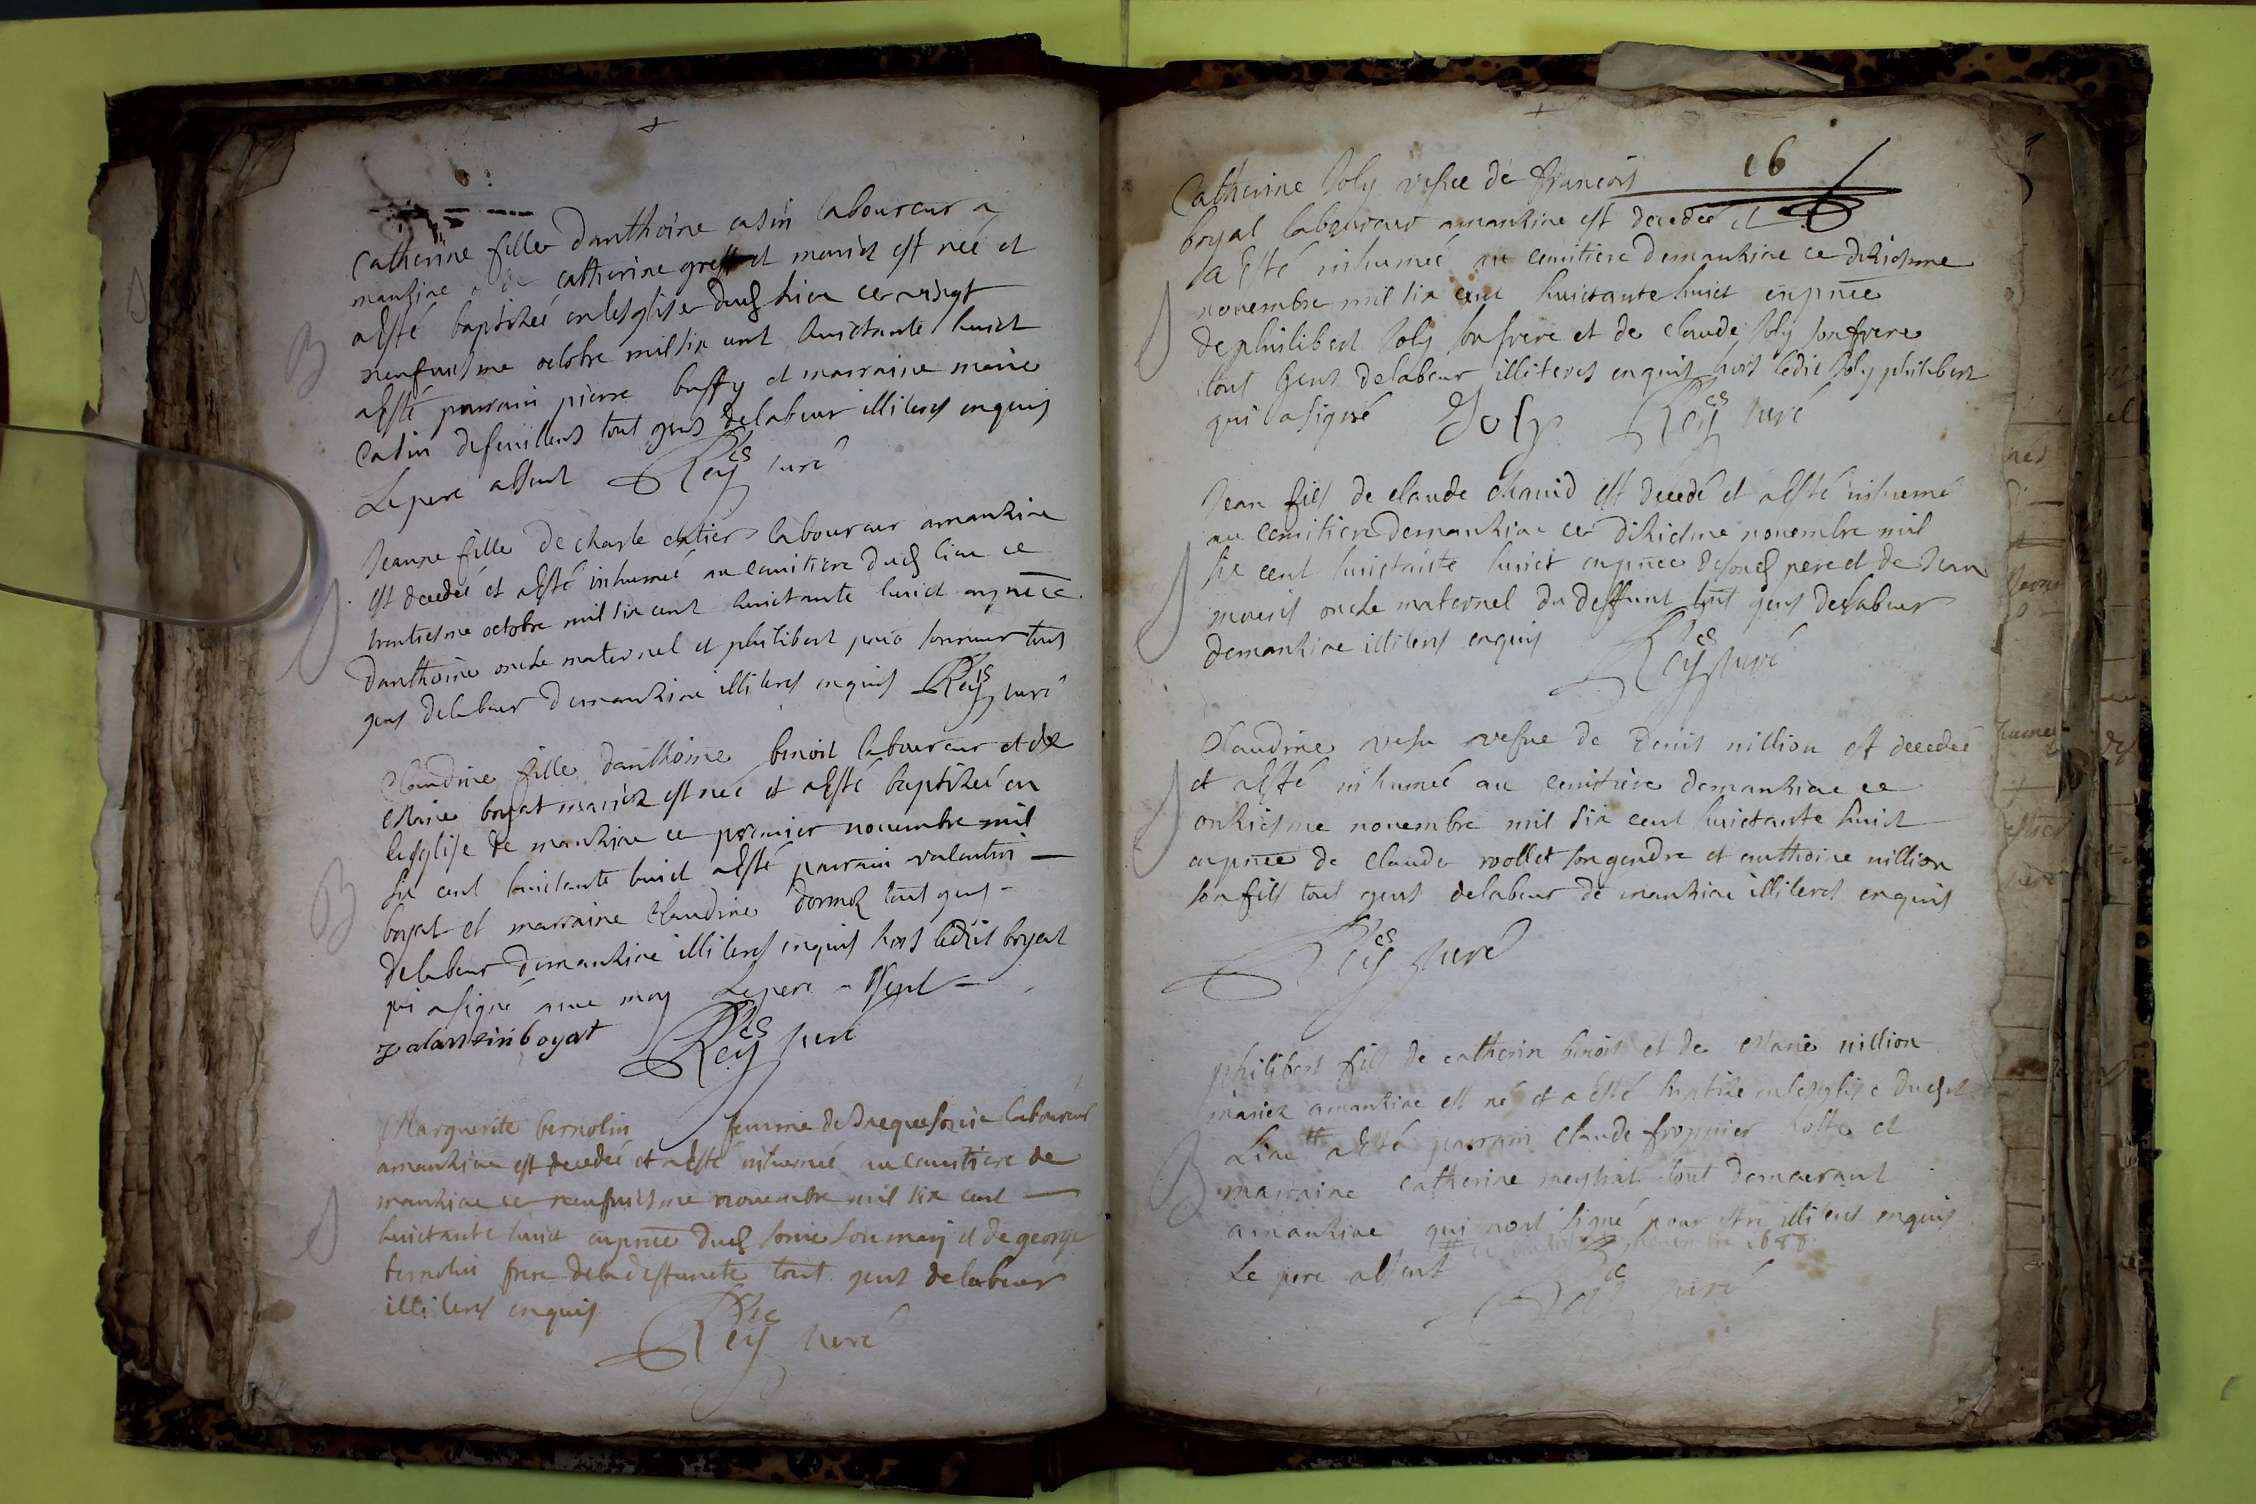 Catherine fille danthoine casin laboureur a
mankiac et de catherine et mariez est neé et
a esté baptizeé en lesglise dud lieu ce vingt
neufviesme octobre mil six cent huictante huict
a esté parrain pierre buffy et marraine marie
Casin defeuillens tout gens de labeur illiterés enquis
Le pere absent Reys curé
Jeanne fille de charle laboureur amankiac
est decedeé et a esté inhumeé au cemitiere dud lieu ce
trentiesme octobre mil six cent huictante huict enpnce
danthoine oncle maternel et philibert sonneur tous
gens delabeur demankiac illiterés enquis Reys curé
Claudine fille danthoine benoit laboureur et de
Marie boyat mariez est neé et a esté baptizeé en
lesglise de mankiac ce premier novembre mil
six cent huictante huict a esté parrain valentin
boyat et marraine Claudine tout gens
delabeur demankiac illiterés enquis hors ledit boyat
qui a signé avec moy Le pere absent
valantin boyat Reys curé
Marguerite bernolin femme de Jaeque sonie laboureur
amankiac est decedeé et a esté inhumeé au cemitiere de
mankiac ce neufviesme novembre mil six cent
huictante huict enpnce dud sonie son mary et de george
bernolin frere deladeffuncte tout gens delabeur
illiterés enquis
Reys curé
16
Catherine Joly vefve de françois
boyat laboureur amankiac est decedeé et
a esté inhumeé au cemitiere demankiac ce dixiesme
novembre mil six cent huictante huict enpnce
de philibert Joly son frere et de claude Joly son frere
tout gens delabeur illiterés enquis hors ledit Joly philibert
qui a signé Joly Reys curé
Jean fils de claude chanid est decedé et a esté inhumé
au cemitiere demankiac ce dixiesme novembre mil
six cent huictante huict enpnce de son pere et de Jean
oncle maternel du deffunt tout gens delabeur
demankiac illiterés enquis Reys curé
Claudine vefve de Denis nillion est decedeé
et a esté inhumeé au cemitiere demankiac ce
onziesme novembre mil six cent huictante huict
enpnce de claude son gendre et anthoine nillion
son fils tout gens delabeur de mankiac illiterés enquis
Reys curé
philibert fils de catherin benoit et de Marie nillion
mariez amankiac est né et a esté baptizé en lesglise dud
Lieu a esté parrain Claude fropmier et
marraine catherine tout demeurant
amankiac qui nont signé pour estre illiterés enquis
Le pere absent novembre 1688
Reys curé